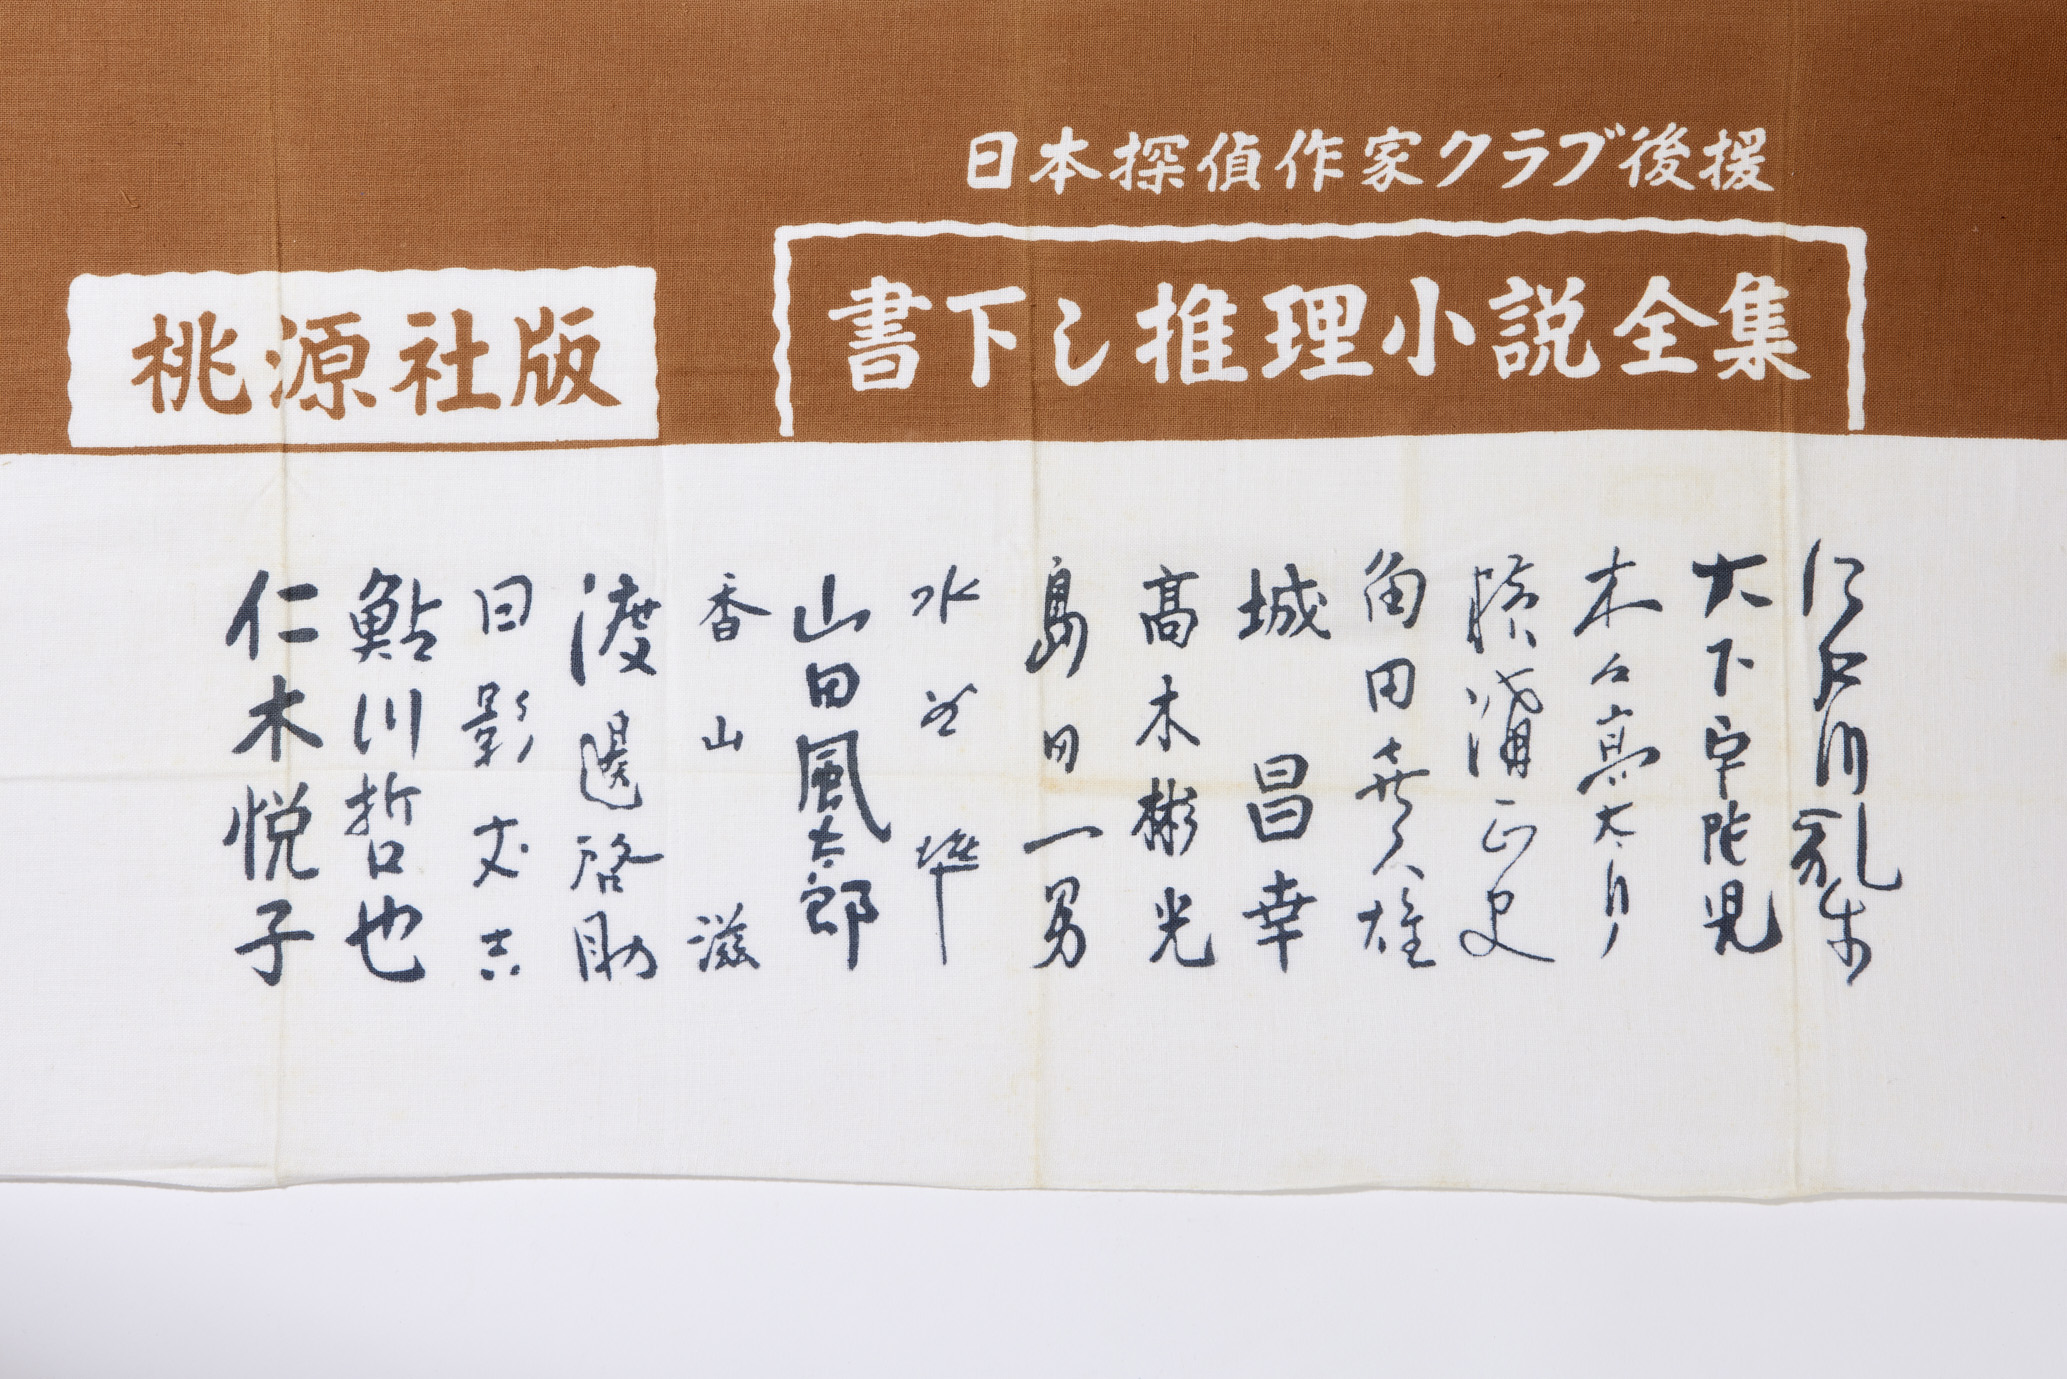 日本探偵作家クラブ後援
書下し推理小説全集
桃源社版
江戸川乱歩
大下宇陀児
木々高太郎
横溝正史
角田喜久雄
城昌幸
高木彬光
島田一男
水谷準
山田風太郎
香山滋
渡邊啓助
日影丈吉
鮎川哲也
仁木悦子